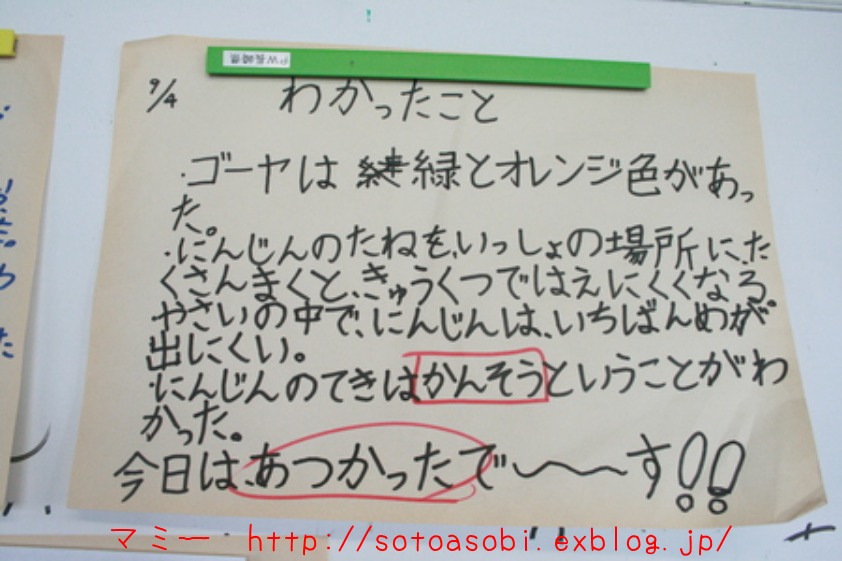 9/4 わかったこと
・ゴーヤは緑とオレンジ色があっ
た。
・にんじんのたねを、いっしょの場所に、た
くさんまくと、きゅうくつではえにくくなる。
やさいの中で、にんじんは、いちばんめが
出にくい。
・にんじんのてきはかんそうということがわ
かった。
今日は、あつかったで〜〜〜す!!
マミー http://sotoasobi.exblog.jp/